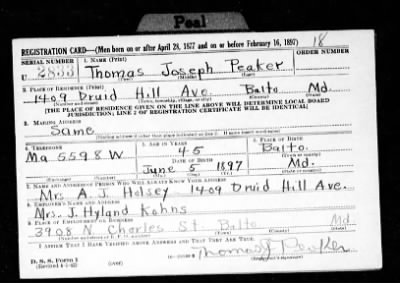 Peal
REGISTRATION CARD—(Men born on or after April 28, 1877 and on or before February 16, 1897) 18
SERIAL NUMBER 1. NAME (Print) ORDER NUMBER
U 2833 Thomas Joseph Peaker
(First) (Middle) (Last)
2. PLACE OF RESIDENCE (Print)
1409 Druid Hill Ave. Balto Md.
(Number and street) (Town, township, village, or city) (County) (State)
[THE PLACE OF RESIDENCE GIVEN ON THE LINE ABOVE WILL DETERMINE LOCAL BOARD
JURISDICTION; LINE 2 OF REGISTRATION CERTIFICATE WILL BE IDENTICAL]
3. MAILING ADDRESS
Same
[Mailing address if other than place indicated on line 2. If same insert word same]
4. TELEPHONE 5. AGE IN YEARS 6. PLACE OF BIRTH
Ma 5598 W 45 Balto.
DATE OF BIRTH (Town or county)
June 5 1897 Md.
(Exchange) (Number) (Mo.) (Day) (Yr.) (State or country)
7. NAME AND ADDRESS OF PERSON WHO WILL ALWAYS KNOW YOUR ADDRESS
Mrs. A. J. Halsey 1409 Druid Hill Ave.
8. EMPLOYER'S NAME AND ADDRESS
Mrs. J. Hyland Kohns
9. PLACE OF EMPLOYMENT OR BUSINESS
3908 N. Charles St. Balto Md.
(Number and street or R. F. D. number) (Town) (County) (State)
I AFFIRM THAT I HAVE VERIFIED ABOVE ANSWERS AND THAT THEY ARE TRUE.
D. S. S. Form 1
(Revised 4-1-42) (over) Thomas J Peaker